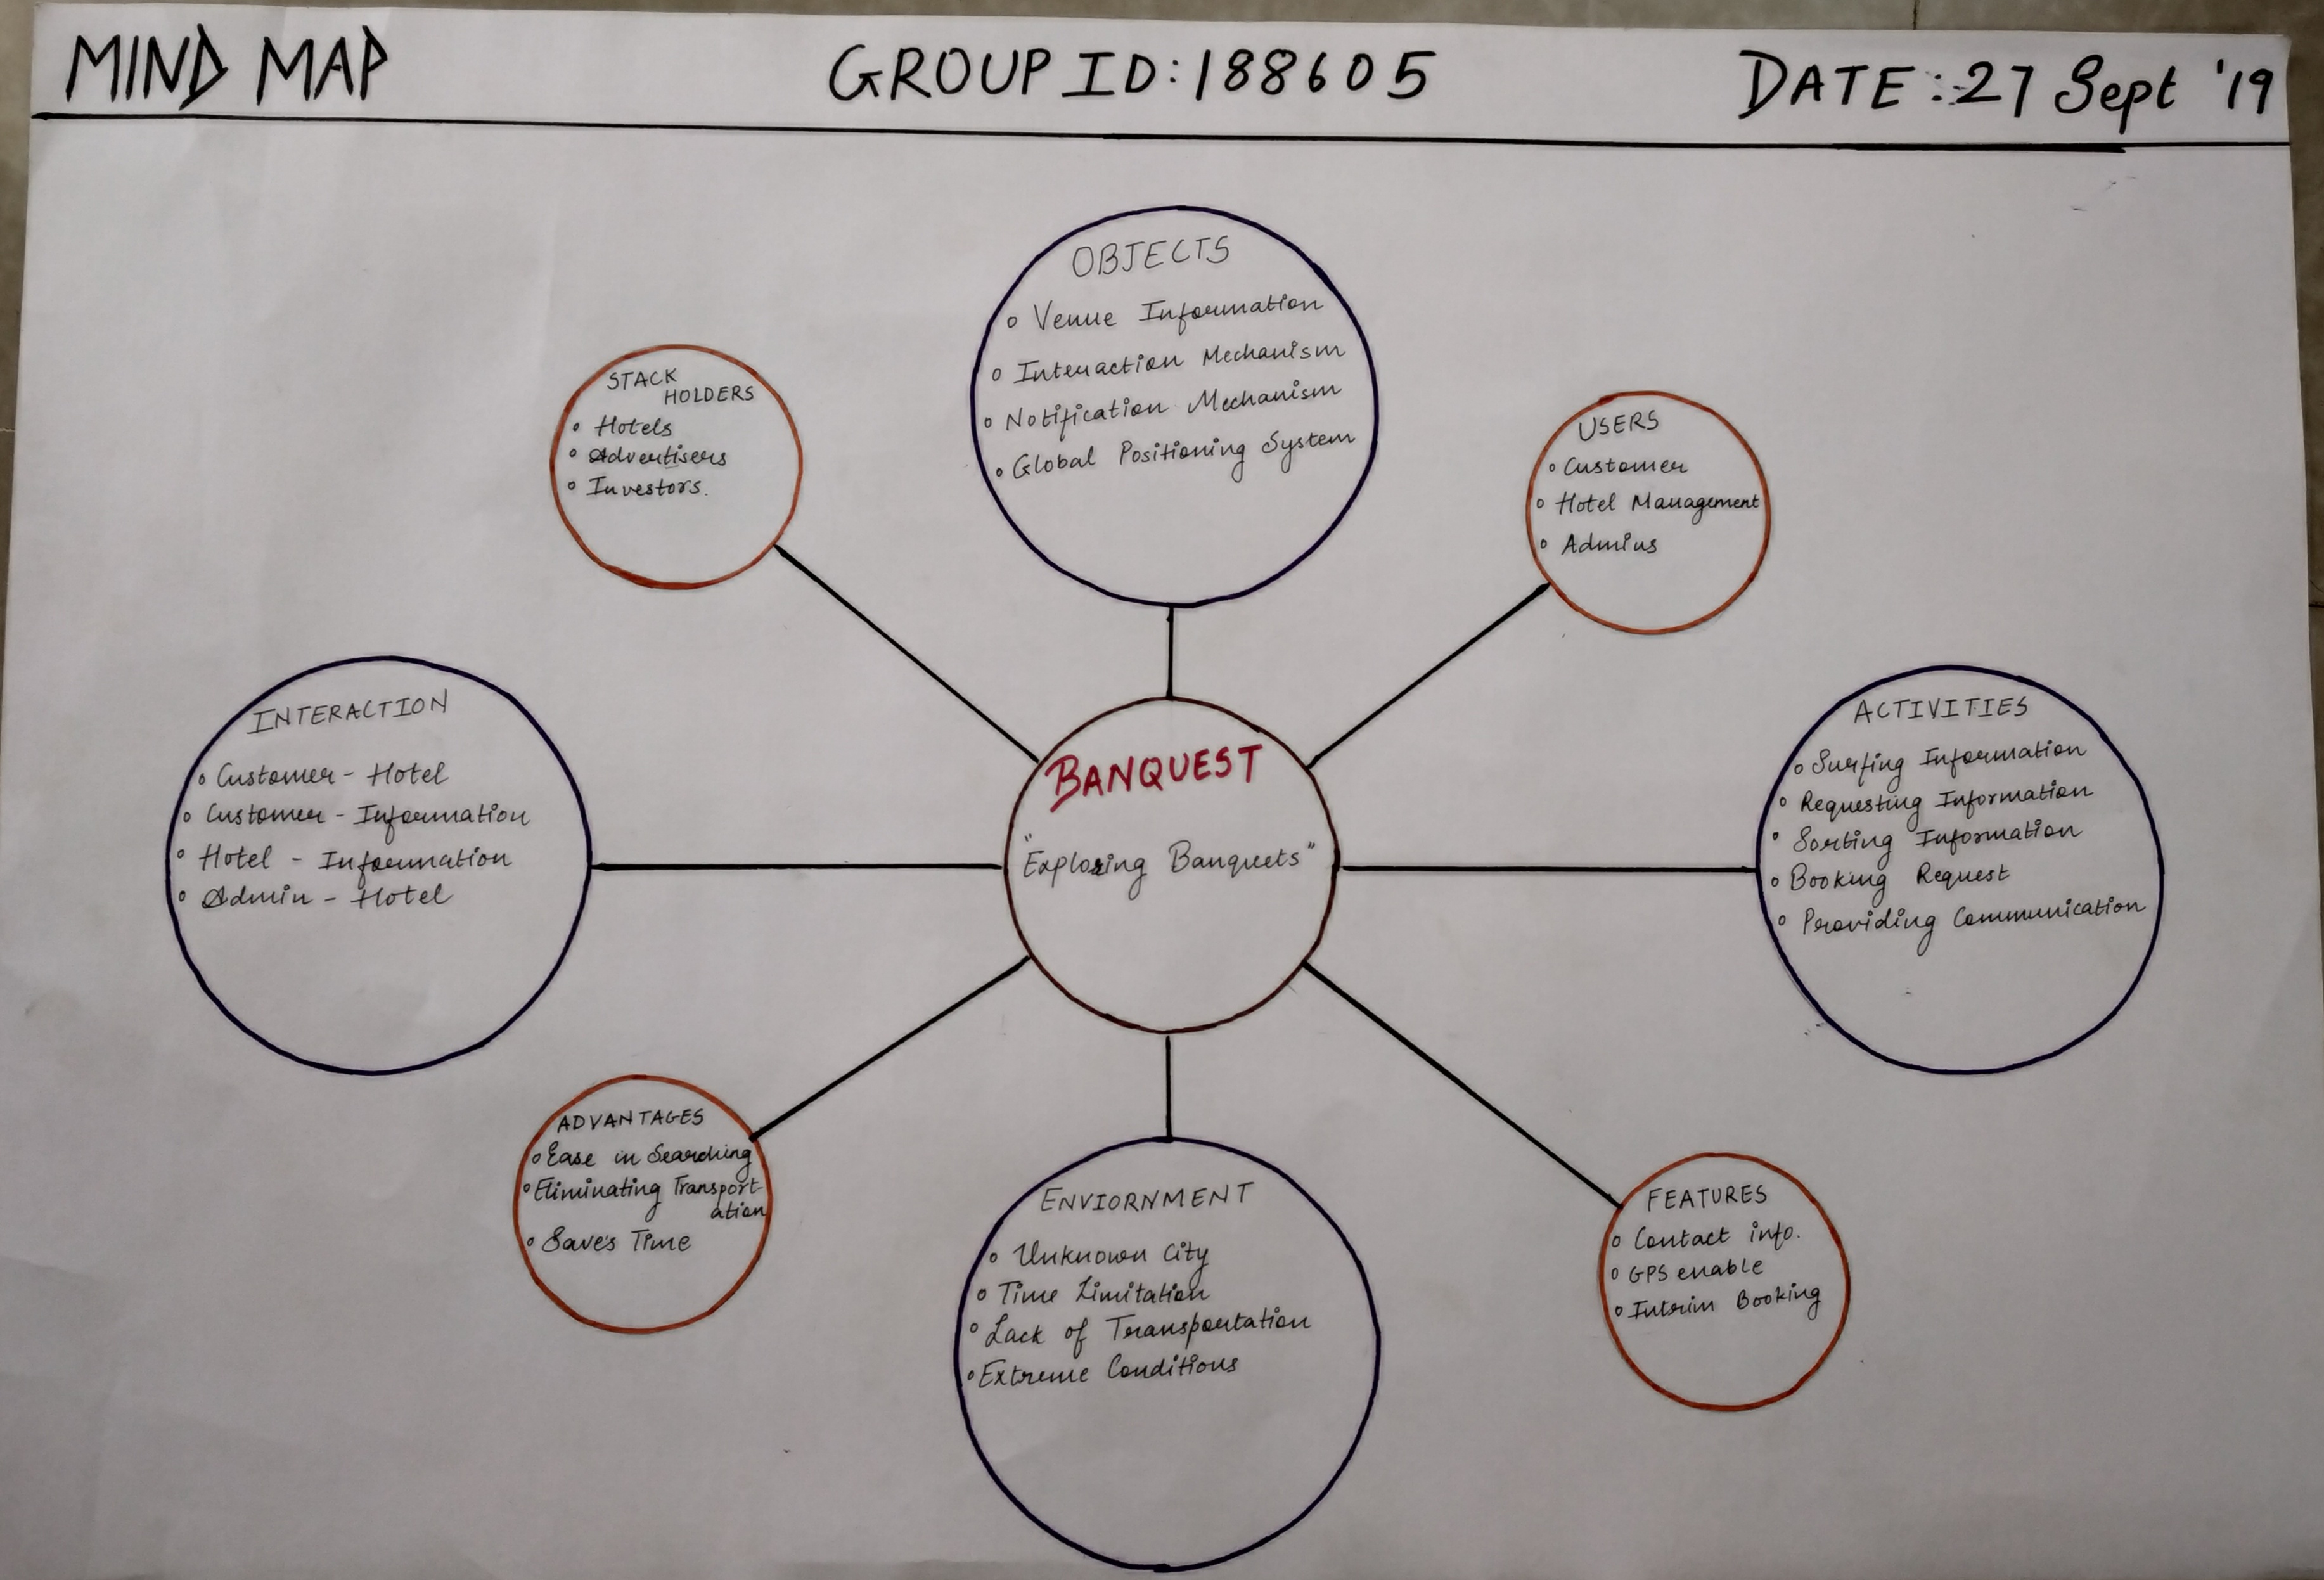 MIND MAP
GROUP ID:188605
DATE:27 Sept '19
OBJECTS
Venue Information
Interaction Mechanism
Notification Mechanism
Global Positioning System
STACK
HOLDERS
Hotels
Advertisers
Investors.
USERS
Customer
Hotel Management
Admins
INTERACTION
Customer - Hotel
Customer - Information
Hotel - Information
Admin - Hotel
BANQUEST
"Exploring Banquets"
ACTIVITIES
Surfing Information
Requesting Information
Sorting Information
Booking Request
Providing Communication
ADVANTAGES
Ease in Searching
Eliminating Transport-
ation
Save's Time
ENVIORNMENT
Unknown City
Time Limitation
Lack of Transportation
Extreme Conditions
FEATURES
Contact info.
GPS enable
Interim Booking